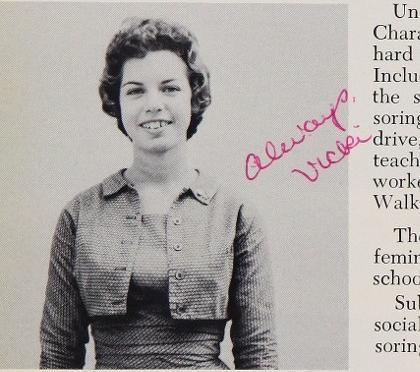 Always,
Vicki
Un
Chara
hard
Inclu
the s
soring
drive,
teach
worke
Walk
The
femin
schoo
Sub
social
soring